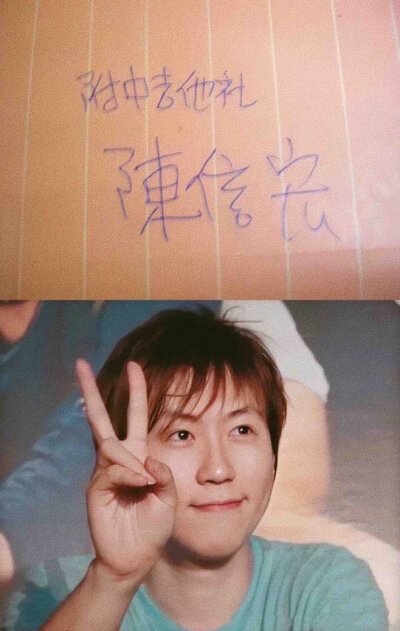 附中吉他社
陳信宏